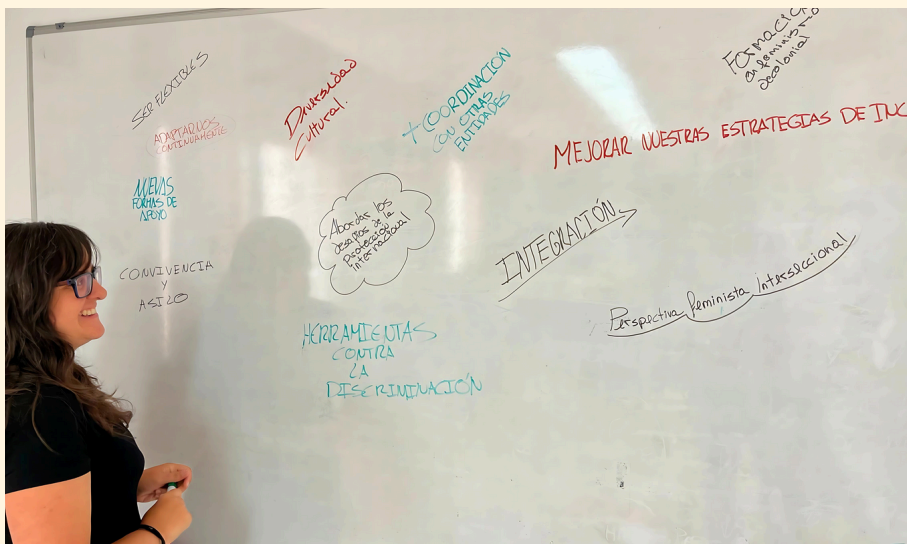 SER FLEXIBLES
ADAPTARNOS
CONTINUAMENTE
NUEVAS
FORMAS DE
APOYO
CONVIVENCIA
Y
ASILO
Diversidad
Cultural.
+ COORDINACIÓN
CON OTRAS
ENTIDADES
Abordar los
desafíos de la
protección
internacional
HERRAMIENTAS
CONTRA
LA
DISCRIMINACIÓN
Formació
en feminismo
decolonial
MEJORAR NUESTRAS ESTRATEGIAS DE INC
INTEGRACIÓN
Perspectiva feminista interseccional